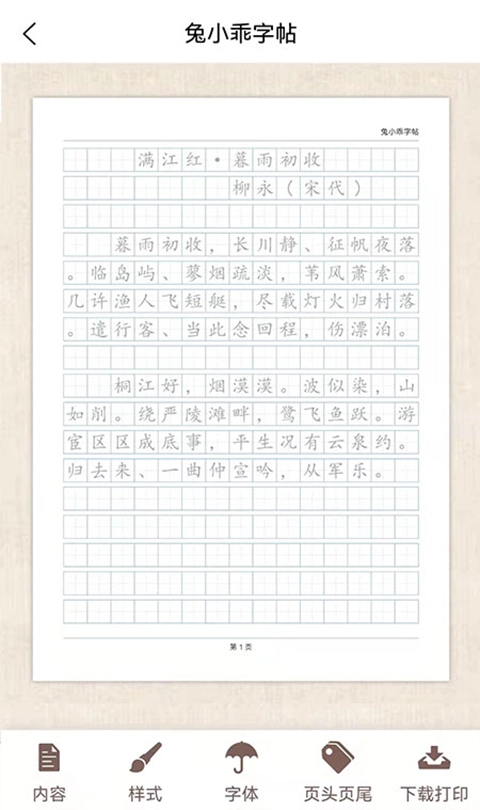 兔小乖字帖
兔小乖字帖
满江红•暮雨初收
柳永（宋代）
暮雨初收，长川静、征帆夜落
。临岛屿、蓼烟疏淡，苇风萧索。
几许渔人飞短艇，尽载灯火归村落
。遣行客、当此念回程，伤漂泊。
桐江好，烟漠漠。波似染，山
如削。绕严陵滩畔，鹭飞鱼跃。游
宦区区成底事，平生况有云泉约。
归去来、一曲仲宣吟，从军乐。
第 1 页
内容 样式 字体 页头页尾 下载打印